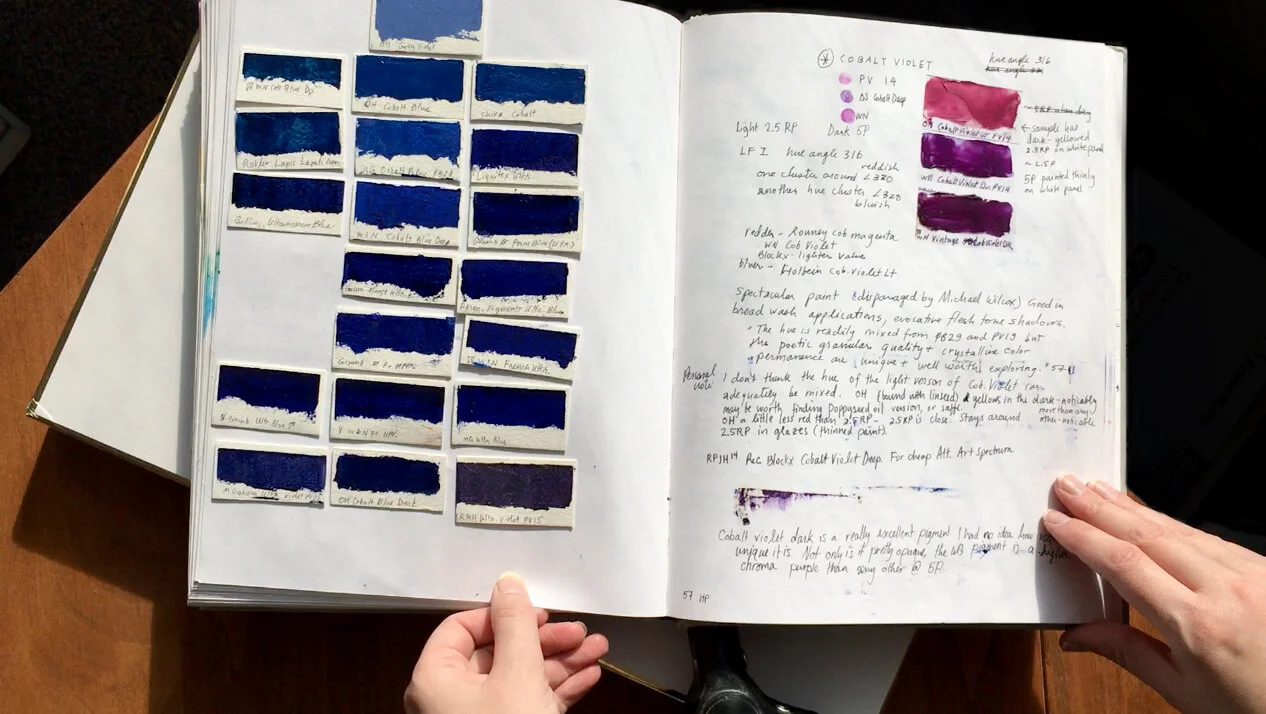 OH Grey Violet
W&N Cob Blue Dp
OH Cobalt Blue
Shiva Cobalt
Lapis Lazuli
Cobalt Blue PB28
Liquitex Ultr.
Ultramarine Blue
W&N Cobalt Blue Deep
Blue (Ultr.)
Ult. Blue
Pigments Ultr. Blue
W&N French Ultr.
Ultr Blue
V. W&N Fr. Ultr.
MG Ultr Blue
M Graham Ultr. Violet PV15
OH Cobalt Blue Dark
Ultr. Violet PV15
* COBALT VIOLET
hue angle 316
PV 14
DS Cobalt Deep
WN
Light 2.5 RP Dark 5P
OH Cobalt Violet Lt PV14
← sample has
dark-yellowed
2.5RP on white panel
~ 2.5P
5P painted thinly
on white panel
WB Cobalt Violet Dp. PV14
WN Vintage Cob Violet Dk
LF I hue angle 316
reddish
one cluster around ∠330
another hue cluster ∠320
bluish
redder - Rowney cob magenta
- WN Cob Violet
Blockx - lighter value
bluer - Holbein cob. violet Lt
Spectacular paint (disparaged by Michael Wilcox) Good in
broad wash applications, evocative flesh tone shadows.
"The hue is readily mixed from PB29 and PV19 but
the poetic granular quality + crystalline color
permanence are unique + well worth exploring." 57
Personal
note
I don't think the hue of the light version of Cob. Violet can
adequately be mixed. OH (bound with linseed) yellows in the dark - noticably
more than any
other - noticable
may be worth finding Poppyseed oil version, or saffl.
OH a little less red than 2.5RP - 2.5RP is close. Stays around
2.5RP in glazes (thinned paint).
RPSH14 Rec Blockx Cobalt Violet Deep. For cheap Alt. Art Spectrum
Cobalt violet dark is a really excellent pigment I had no idea how
unique it is. Not only is it pretty opaque, the WB pigment is a higher
chroma purple than any other @ 5P.
57 HP